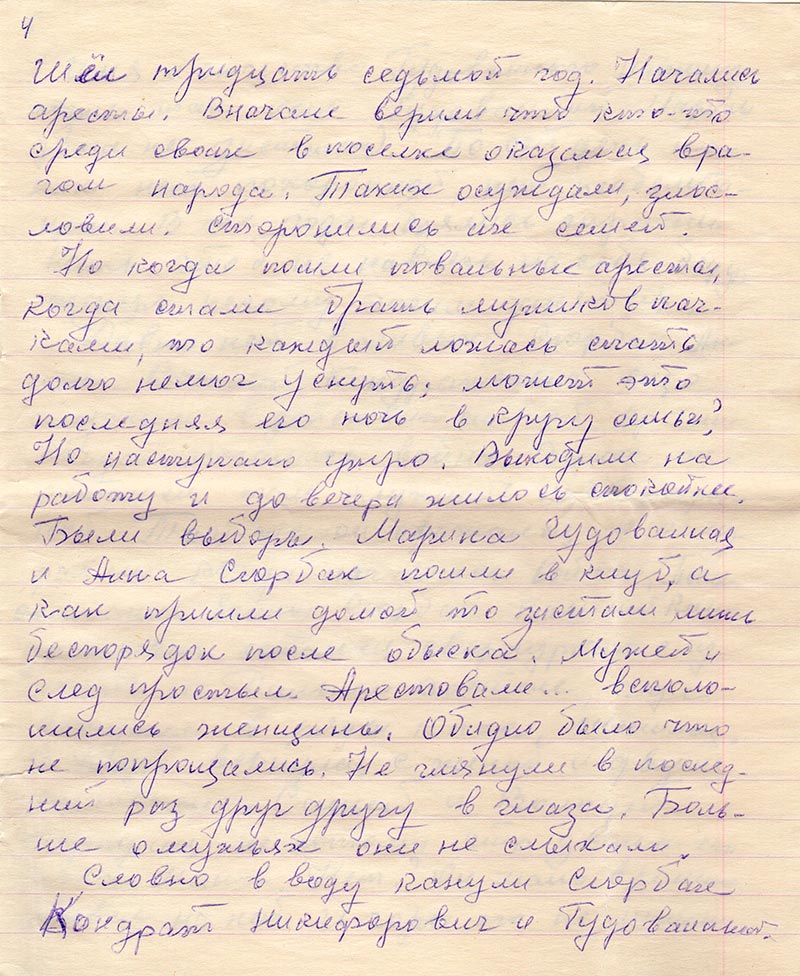 4
Шёл тридцать седьмой год. Начались
аресты. Вначале верили что кто-то
среди своих в поселке оказался вра-
гом народа. Таких осуждали, злос-
ловили. Сторонились их семей.
Но когда пошли повальные аресты,
когда стали брать мужиков пач-
ками, то каждый ложась спать
долго немог уснуть: может это
последняя его ночь в кругу семьи?
Но наступало утро. Выходили на
работу и до вечера жилось спокойнее.
Были выборы. Марина Гудованная
и Анна Скорбак пошли в клуб, а
как пришли домой то застали лишь
беспорядок после обыска. Мужей и
след простыл. Арестовали... всполо-
шились женщины. Обидно было что
не попрощались. Не глянули в послед-
ний раз друг другу в глаза. Боль-
ше о мужьях они не слыхали.
Словно в воду канули Скорбак
Кондрат Никифорович и Гудованный.